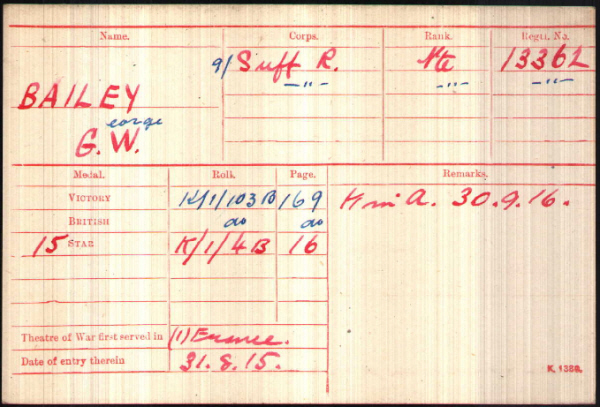 Name. Corps. Rank. Regtl. No.
9/ Suff R. Pte 13362
BAILEY —"— —"— —"—
eorge
G. W.
Medal. Roll. Page. Remarks.
VICTORY K/1/103 B 169 K in A. 30.9.16.
BRITISH do do
15 STAR K/1/4 B 16
Theatre of War first served in (1) France.
Date of entry therein 31.8.15.
K. 1380.